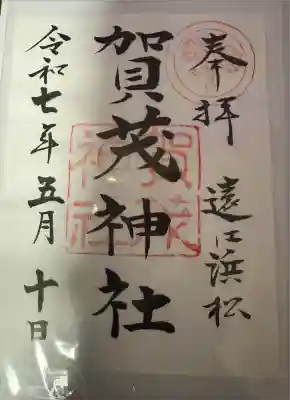 奉拝
遠江浜松
賀茂神社
賀茂
神社
令和七年五月十日